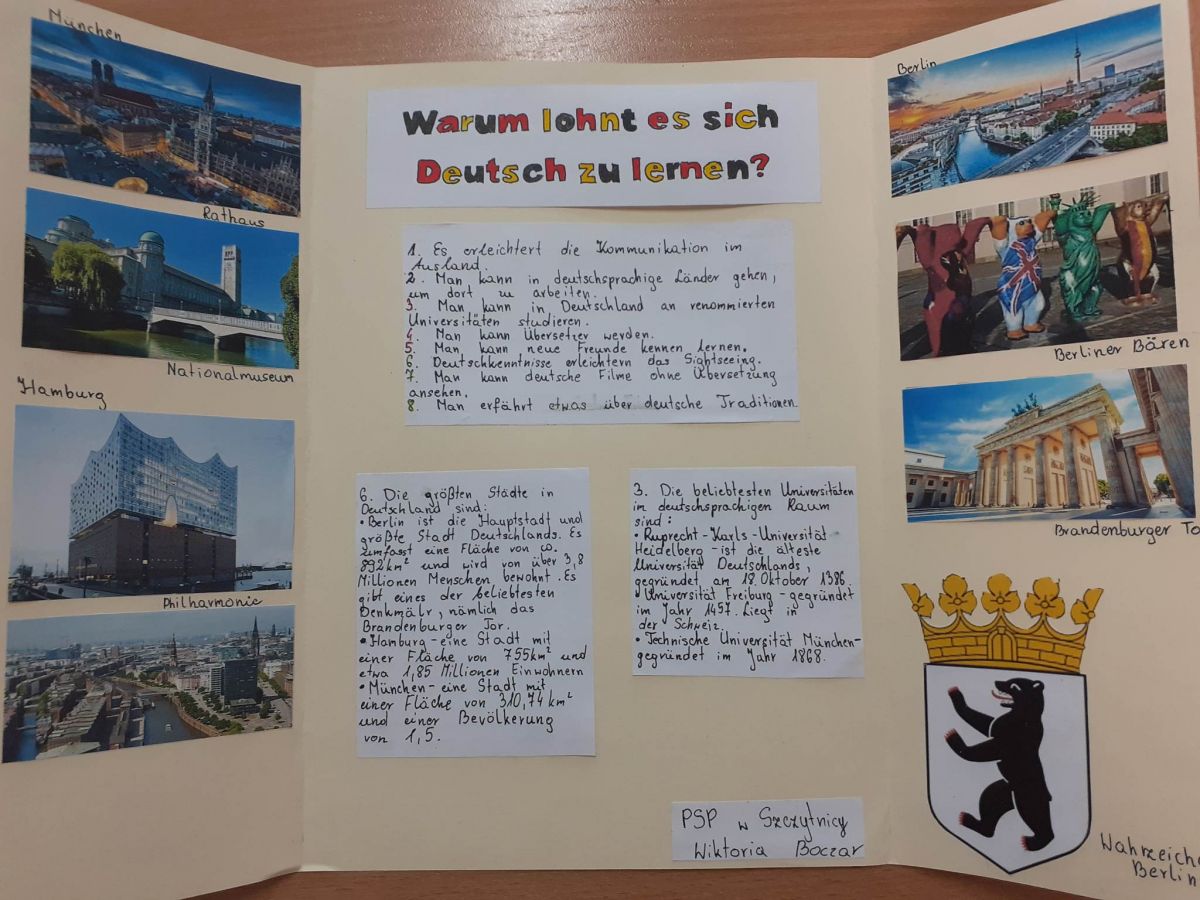 München
Rathaus
Nationalmuseum
Hamburg
Philharmonie
Warum lohnt es sich
Deutsch zu lernen?
1. Es erleichtert die Kommunikation im
Ausland.
2. Man kann in deutschsprachige Länder gehen,
um dort zu arbeiten.
3. Man kann in Deutschland an renommierten
Universitäten studieren.
4. Man kann Übersetzer werden.
5. Man kann neue Freunde kennen lernen.
6. Deutschkenntnisse erleichtern das Sightseeing.
7. Man kann deutsche Filme ohne Übersetzung
ansehen.
8. Man erfährt etwas über deutsche Traditionen.
6. Die größten Städte in
Deutschland sind:
• Berlin ist die Hauptstadt und
größte Stadt Deutschlands. Es
umfasst eine Fläche von co.
892 km² und wird von über 3,8
Millionen Menschen bewohnt. Es
gibt eines der beliebtesten
Denkmälr, nämlich das
Brandenburger Tor.
• Hamburg - eine Stadt mit
einer Fläche von 755km² und
etwa 1,85 Millionen Einwohnern
• München - eine Stadt mit
einer Fläche von 310,74 km²
und einer Bevölkerung
von 1,5.
3. Die beliebtesten Universitäten
im deutschsprachigen Raum
sind:
• Ruprecht-Karls-Universität
Heidelberg - ist die älteste
Universität Deutschlands,
gegründet am 18. Oktober 1386.
• Universität Freiburg - gegründet
im Jahr 1457. Liegt in
der Schweiz.
• Technische Universität München-
gegründet im Jahr 1868.
PSP w Szczytnicy
Wiktoria Boczar
Berlin
Berliner Bären
Brandenburger To
Wahrzeiche
Berlin